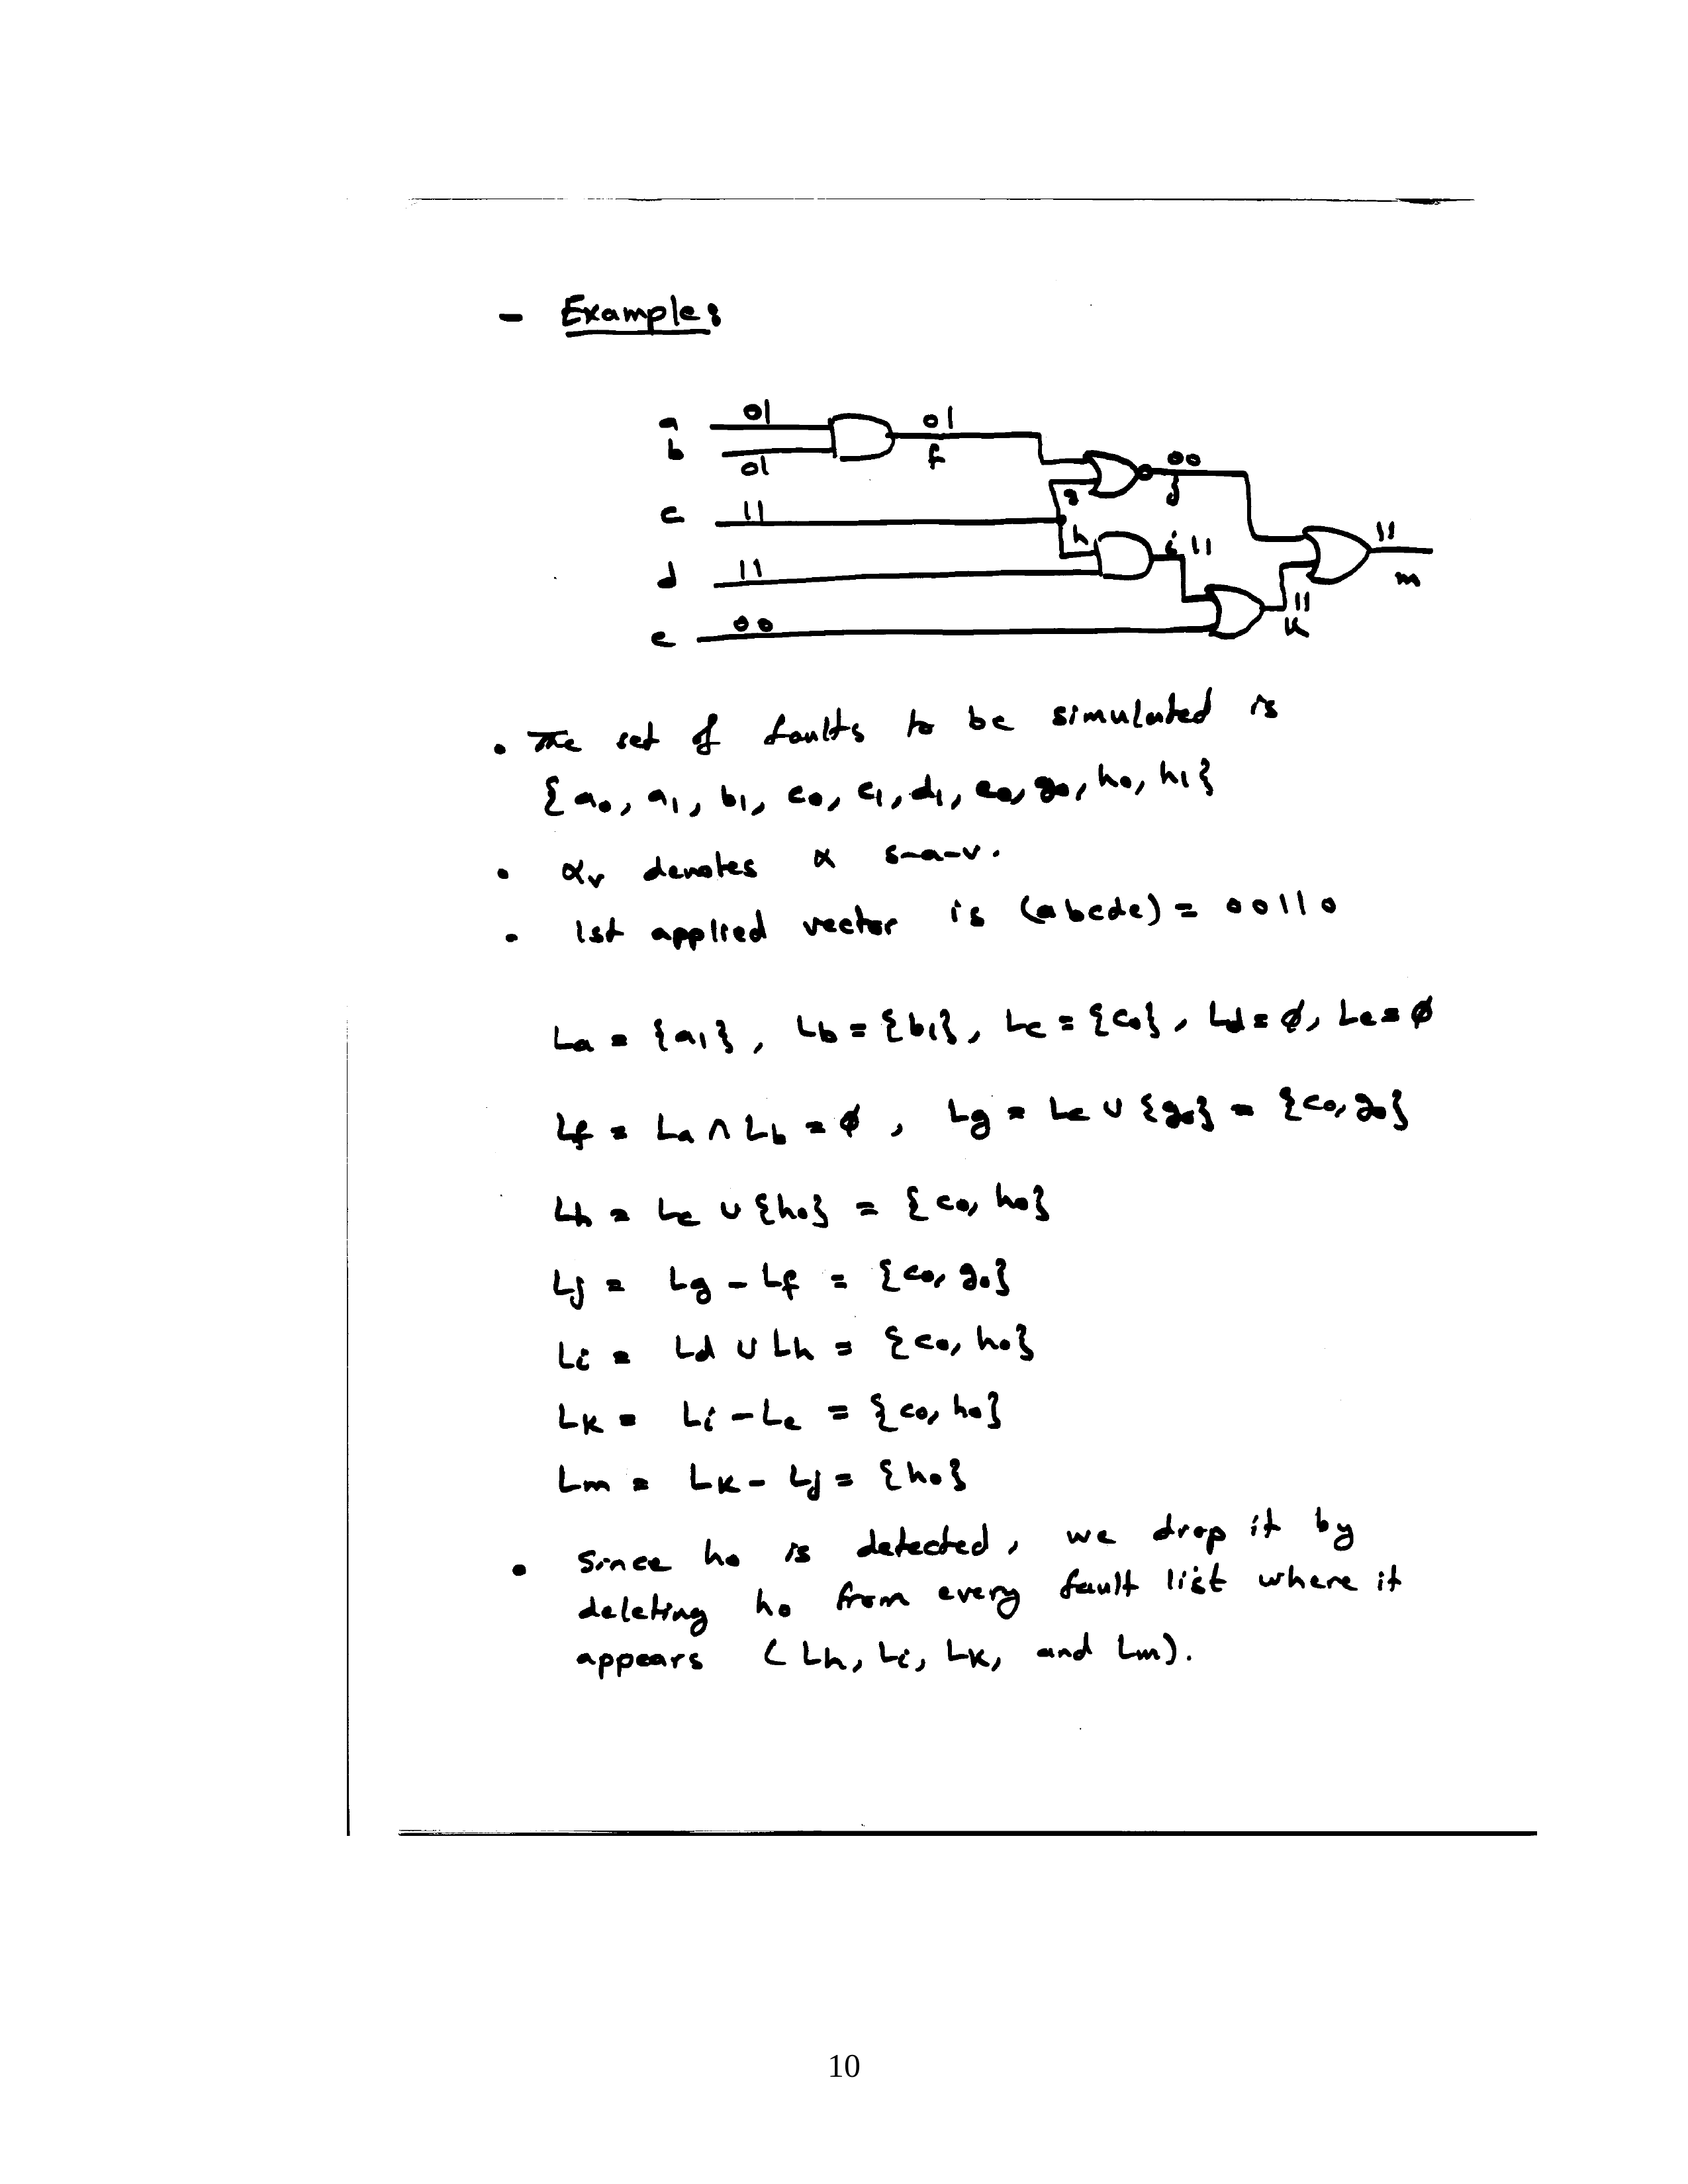 - Example:
a 01 01
b 01 f
00
g j
c 11
11
h i 11
d 11
m
e 00 11
k
• The set of faults to be simulated is
{a0, a1, b1, c0, c1, d1, e0, g0, h0, h1}
• αv denotes α s-a-v.
• 1st applied vector is (abcde) = 00110
La = {a1}, Lb = {b1}, Lc = {c0}, Ld = ∅, Le = ∅
Lf = La ∩ Lb = ∅, Lg = Lc ∪ {g0} = {c0, g0}
Lh = Lc ∪ {h0} = {c0, h0}
Lj = Lg - Lf = {c0, g0}
Li = Ld ∪ Lh = {c0, h0}
Lk = Li - Le = {c0, h0}
Lm = Lk - Lj = {h0}
• Since h0 is detected, we drop it by
deleting h0 from every fault list where it
appears (Lh, Li, Lk, and Lm).
10